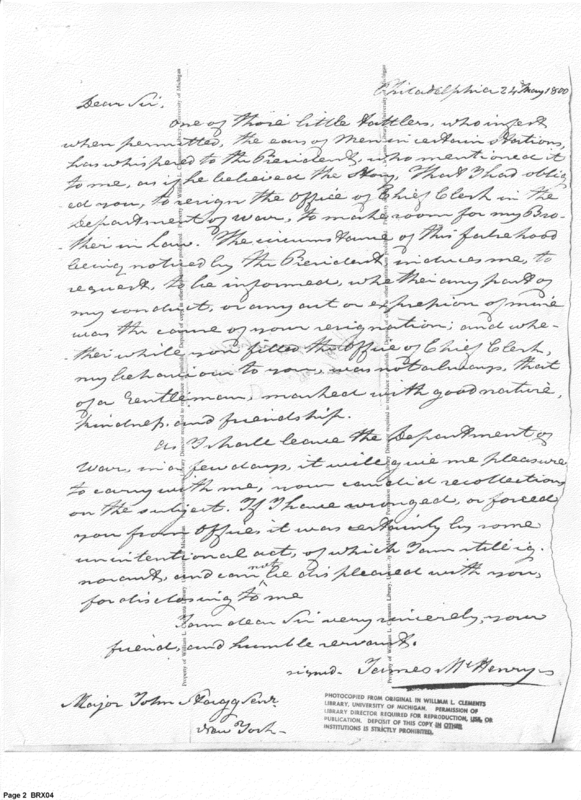 Philadelphia 24 May 1800
Dear Sir.
One of those little tattlers, who infest
when permitted, the ears of Men in certain Stations,
has whispered to the President, who mentioned it
to me, as if he believed the story, That I had oblig
ed you, to resign the Office of Chief Clerk in the
Department of War, to make room for my Bro-
ther in Law. The circumstance of this falsehood
being noticed by the President induces me, to
request, to be informed, whether any part of
my conduct, or any act or expression of mine
was the cause of your resignation; and whe-
ther while you filled the Office of Chief Clerk,
my behaviour to you, was not always, that
of a Gentleman, marked with good nature,
kindness and friendship.
As I shall leave the Department of
War, in a few days, it will give me pleasure
to carry with me, your candid recollections
on the subject. If I have wronged, or forced
you from Office, it was certainly by some
unintentional act, of which I am still ig-
norant, and can not be displeased with you,
for disclosing to me
I am dear Sir very sincerely, your
friend, and humble servant.
signed. James McHenry
Major John Stagg Senr.
New York
PHOTOCOPIED FROM ORIGINAL IN WILLIAM L. CLEMENTS
LIBRARY, UNIVERSITY OF MICHIGAN. PERMISSION OF
LIBRARY DIRECTOR REQUIRED FOR REPRODUCTION, USE, OR
PUBLICATION. DEPOSIT OF THIS COPY IN OTHER
INSTITUTIONS IS STRICTLY PROHIBITED.
Page 2 BRX04